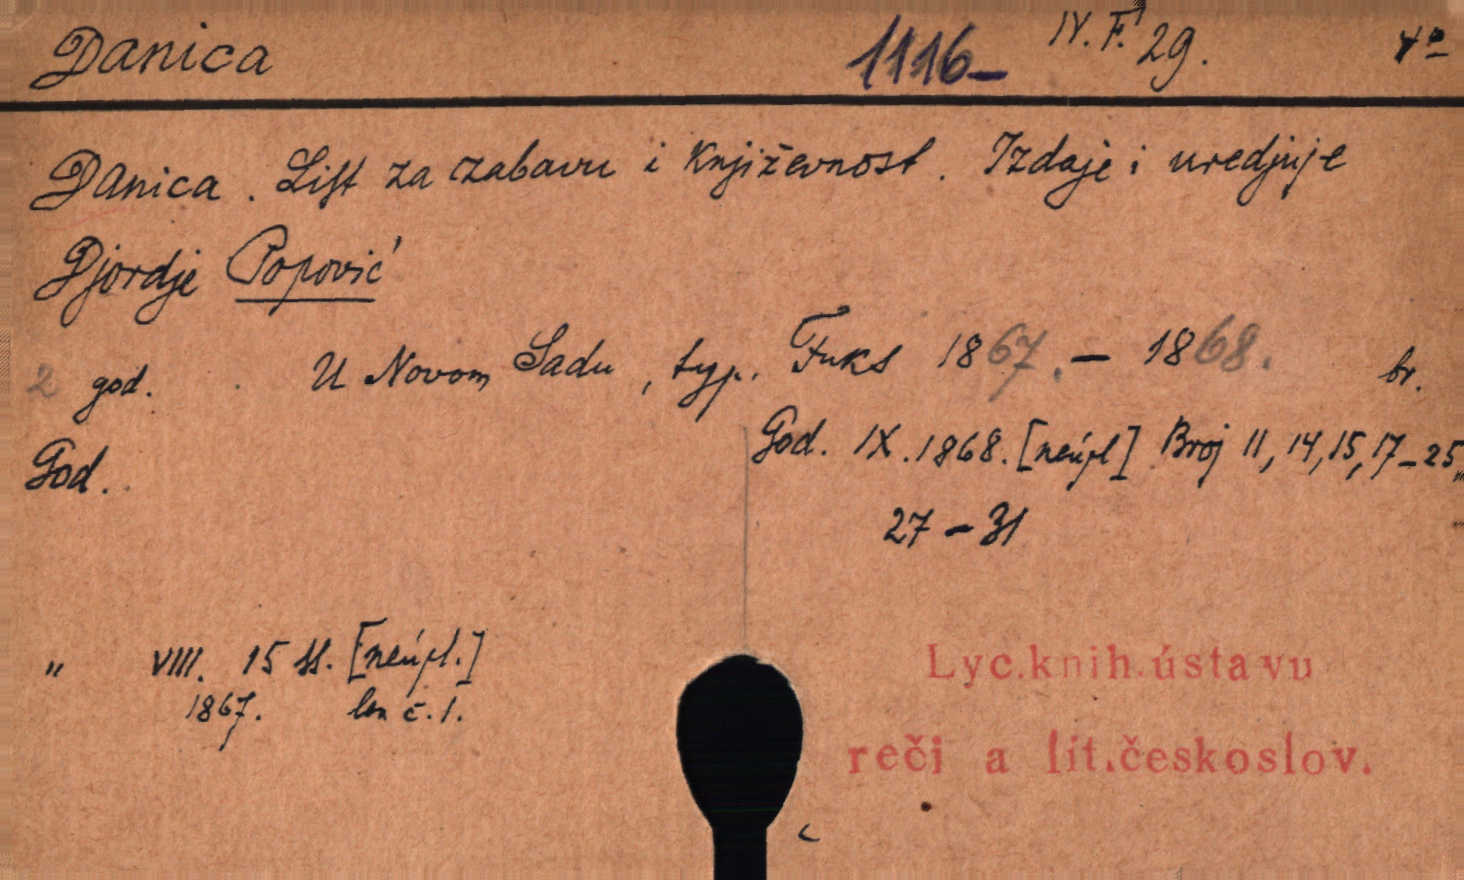 Danica 1116- IV. F. 29. 4º
Danica. List za zabavu i književnost. Izdaje i uredjuje
Djordje Popović
2 god. U Novom Sadu, typ. Fuks 1867. — 1868. br.
God. God. IX. 1868. [neúpl] Broj 11, 14, 15, 17-25,
27-31
" VIII. 15 [neúpl.]
1867. len č. 1.
Lyc. knih. ústavu
reči a lit. českoslov.